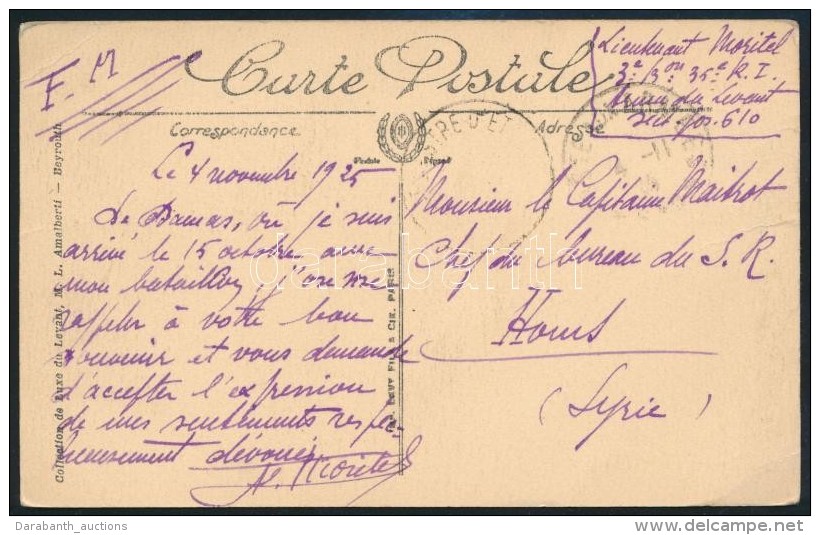 F. M
Carte Postale
Correspondance
Adresse
Lieutenant Moritel
3e Bon 35e R. I.
Armée du Levant
Sect. pos. 610
Le 4 novembre 1925
De Damas, où je suis
arrivé le 15 octobre avec
mon bataillon, j'ose me
rappeler à votre bon
souvenir et vous demande
d'accepter l'expression
de mes sentiments respec-
tueusement dévoués
Monsieur le Capitaine Maitrot
Chef du bureau du S. R.
Homs
(Syrie)
Collection de Luxe du Levant, M. L. Amalberti — Beyrouth
LEVY FILS & CIE. PARIS
darabanth
Darabanth_auctions
http://www.delcampe.net